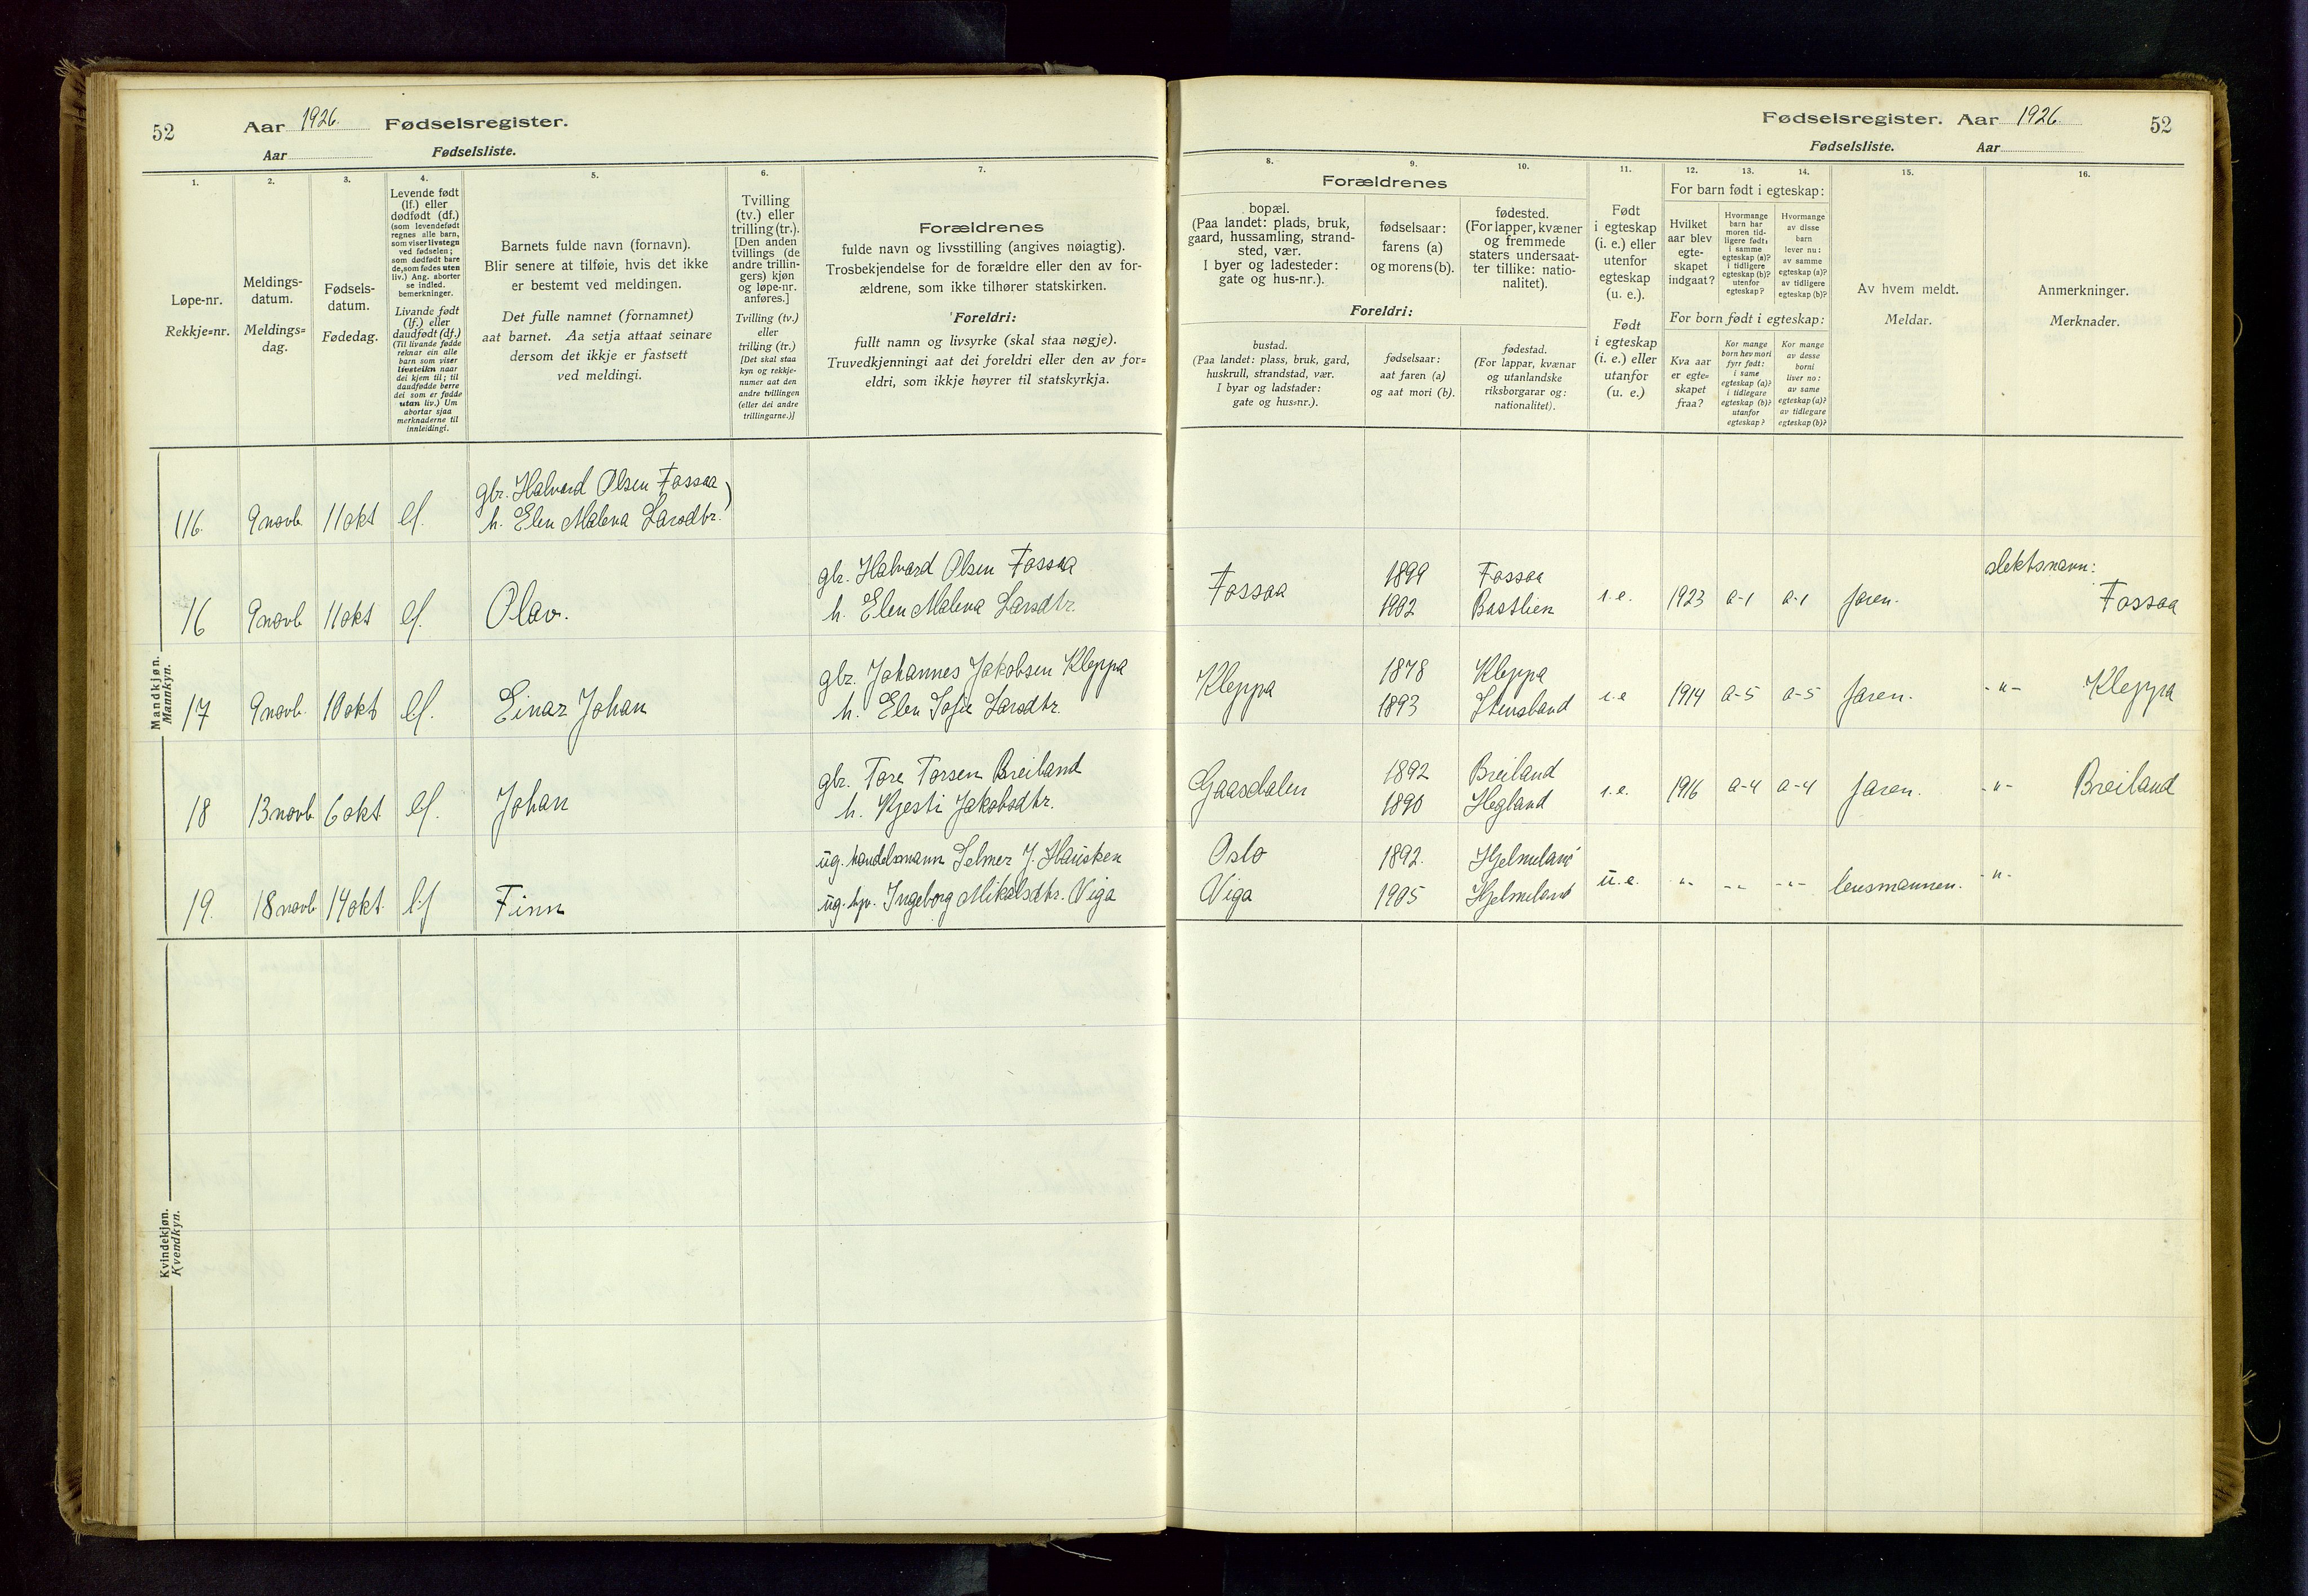 52
Aar 1926. Fødselsregister.
Aar Fødselsliste.
1.
Løpe-nr.
Rekkje=nr.
2.
Meldings-
datum.
Meldings=
dag.
3.
Fødsels-
datum.
Fødedag.
4.
Levende født
(lf.) eller
dødfødt (df.)
(som levendefødt
regnes alle barn,
som viser livstegn
ved fødselen;
som dødfødt bare
de, som fødes uten
liv.) Ang. aborter
se indled.
bemerkninger.
Livande født
(lf.) eller
daudfødt (df.)
(Til livande fødde
reknar ein alle
barn som viser
livsteikn naar
dei kjem til; til
daudfødde berre
dei som er fødde
utan liv.) Um
abortar sjaa
merknaderne til
innleidingi.
5.
Barnets fulde navn (fornavn).
Blir senere at tilføie, hvis det ikke
er bestemt ved meldingen.
Det fulle namnet (fornamnet)
aat barnet. Aa setja attaat seinare
dersom det ikkje er fastsett
ved meldingi.
6.
Tvilling
(tv.) eller
trilling (tr.).
[Den anden
tvillings (de
andre trillin-
gers) kjøn
og løpe-nr.
anføres.]
Tvilling (tv.)
eller
trilling (tr.)
[Det skal staa
kyn og rekkje-
numer aat den
andre tvillingen
(eller dei andre
trillingarne.)]
7.
Forældrenes
fulde navn og livsstilling (angives nøiagtig).
Trosbekjendelse for de forældre eller den av for-
ældrene, som ikke tilhører statskirken.
Foreldri:
fullt namn og livsyrke (skal staa nøgje).
Truvedkjenningi aat dei foreldri eller den av for=
eldri, som ikkje høyrer til statskyrkja.
Mandkjøn.
Mannkyn.
116. 9 novb. 11 okt lf. gbr. Halvard Olsen Fossaa
h. Elen Malena Larsdtr.)
16 9 novb 11 okt lf. Olav. gbr. Halvard Olsen Fossaa
h. Elen Malena Larsdtr.
17 9 novb. 10 okt lf. Einar Johan gbr. Johannes Jakobsen Kleppa
h. Elen Sofie Larsdtr.
18 13 novb 6 okt lf. Johan gbr. Tore Torsen Breiland
h. Kjesti Jakobsdtr.
19. 18 novb 14 okt. lf Finn ug. handelsmann Selmer J. Hausken
ug. Ingeborg Mikalsdtr. Viga
Kvindekjøn.
Kvendkyn.
Fødselsregister. Aar 1926.
52
Fødselsliste. Aar
Forældrenes
8.
bopæl.
(Paa landet: plads, bruk,
gaard, hussamling, strand-
sted, vær.
I byer og ladesteder:
gate og hus-nr.).
9.
fødselsaar:
farens (a)
og morens (b).
10.
fødested.
(For lapper, kvæner
og fremmede
staters undersaat-
ter tillike: natio-
nalitet).
Foreldri:
bustad.
(Paa landet: plass, bruk, gard,
huskrull, strandstad, vær.
I byar og ladstader:
gate og hus=nr.).
fødselsaar:
aat faren (a)
og aat mori (b).
fødestad.
(For lappar, kvænar
og utanlandske
riksborgarar og:
nationalitet).
11.
Født
i egteskap
(i. e.) eller
utenfor
egteskap
(u. e.).
Født
i egteskap
(i. e.) eller
utanfor
(u. e.)
For barn født i egteskap:
12.
Hvilket
aar blev
egte-
skapet
indgaat?
13.
Hvormange
barn har
moren tid-
ligere født:
i samme
egteskap (a)?
i tidligere
egteskap (b)?
utenfor
egteskap?
14.
Hvormange
av disse
barn
lever nu:
av samme
egteskap (a)?
av tidligere
egteskap (b)?
For born født i egteskap:
Kva aar
er egte-
skapet
fraa?
Kor mange
born hev mori
fyrr født:
i same
egteskap (a)?
i tidlegare
egteskap (b)?
utanfor
egteskap?
Kor mange
av desse
borni
liver no:
av same
egteskap (a)?
av tidlegare
egteskap (b)?
15.
Av hvem meldt.
Meldar.
16.
Anmerkninger.
Merknader.
Fossaa 1899 Fossaa i.e. 1923 a-1 a-1 faren. slektsnavn:
1902 Bastlien Fossaa
Kleppa 1878 Kleppa i.e 1914 a-5 a-5 faren. -"- Kleppa
1893 Stensland
Gaasdalen 1892 Breiland i.e. 1916 a-4 a-4 faren. -"- Breiland
1890 Hegland
Oslo 1892. Hjelmeland
Viga 1905 Hjelmeland u.e. -"- -"- -"- lensmannen. -"-